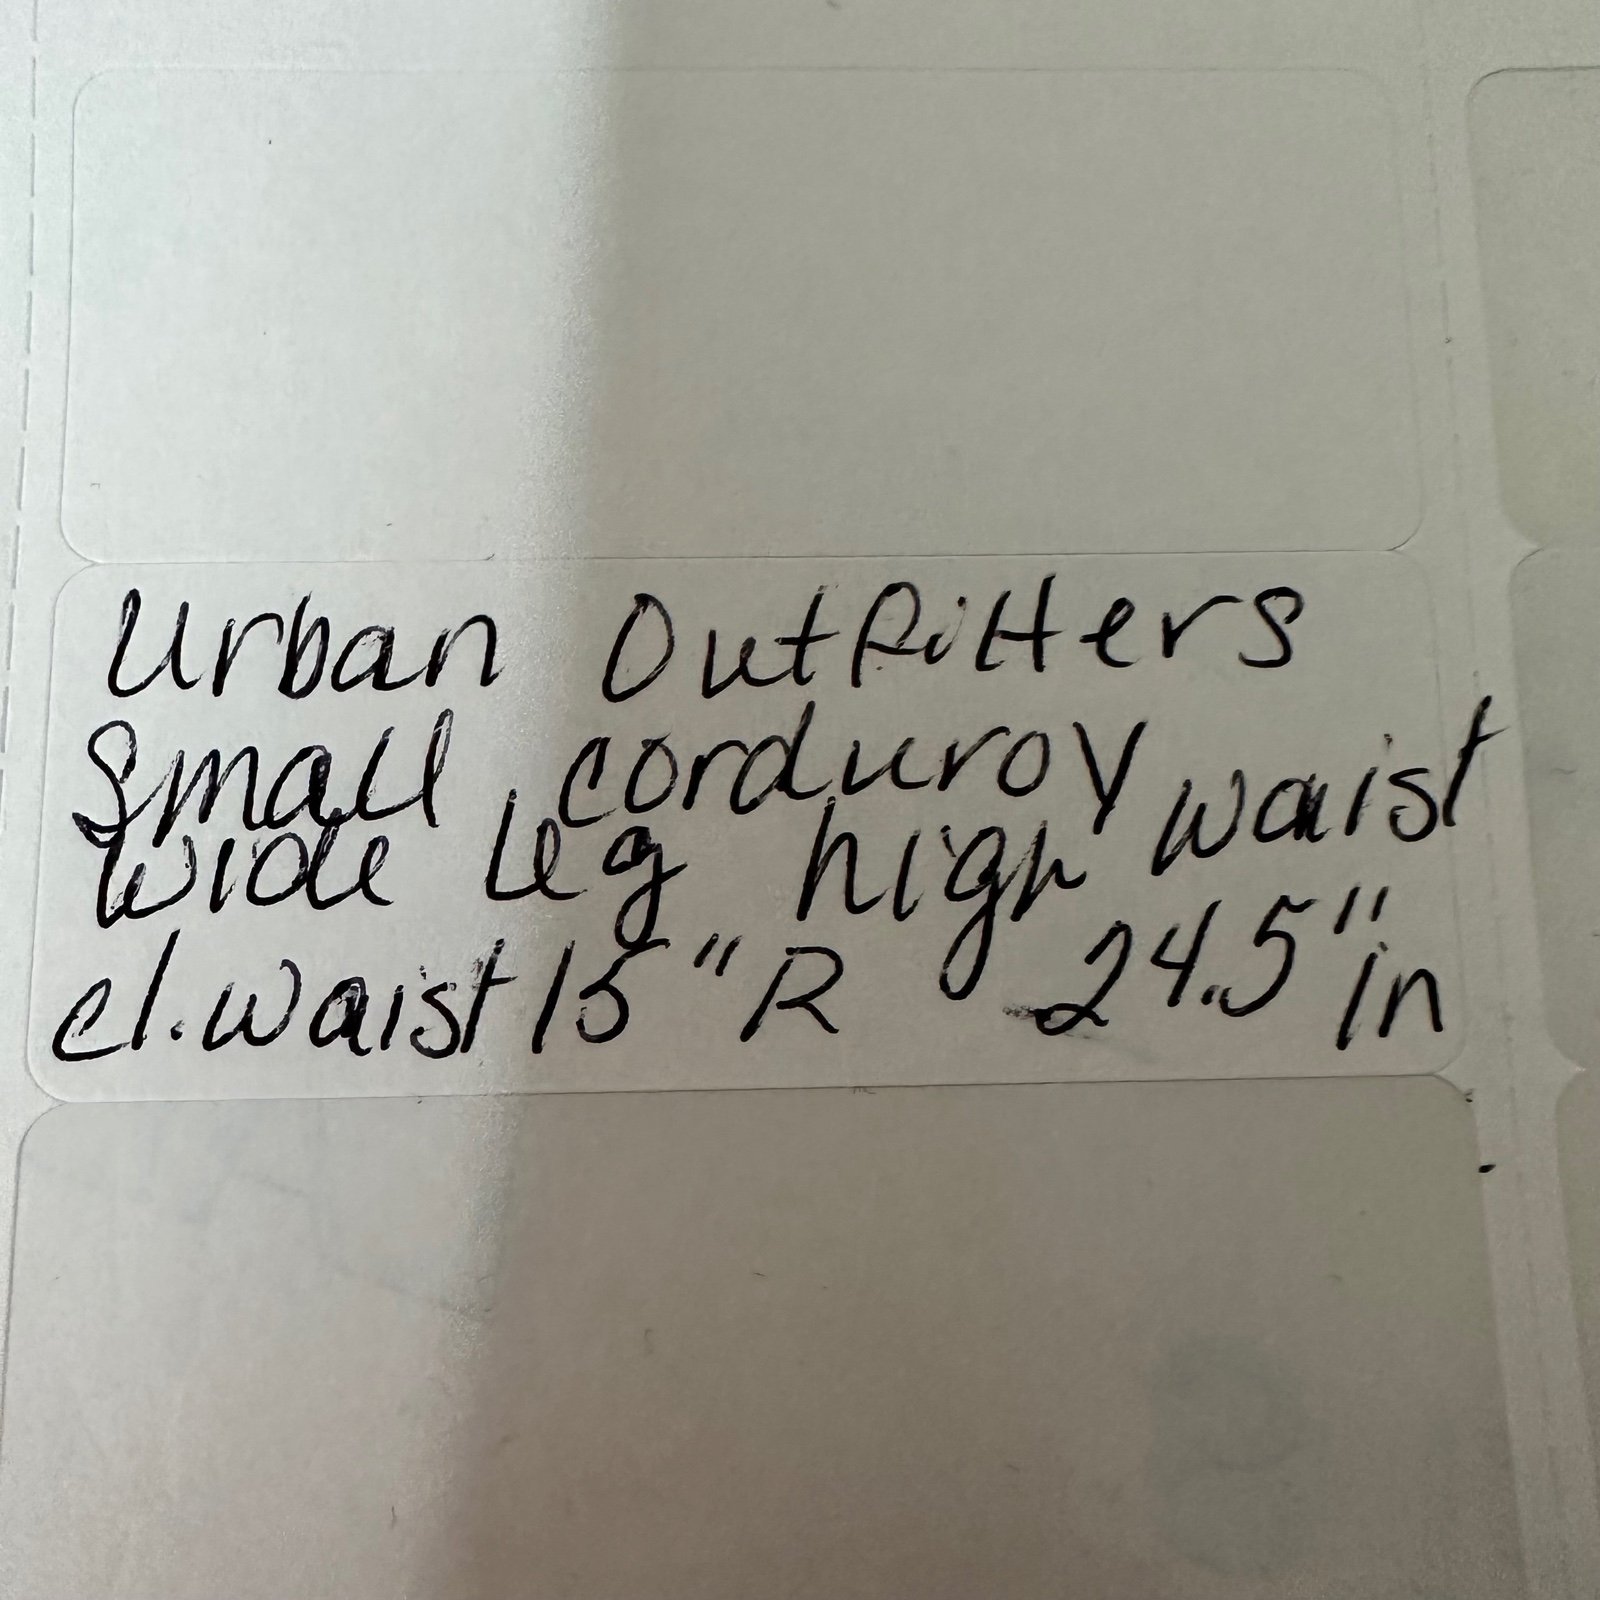 Urban Outfitters
Small, corduroy
wide leg high waist
el. waist 15" R 24.5" in